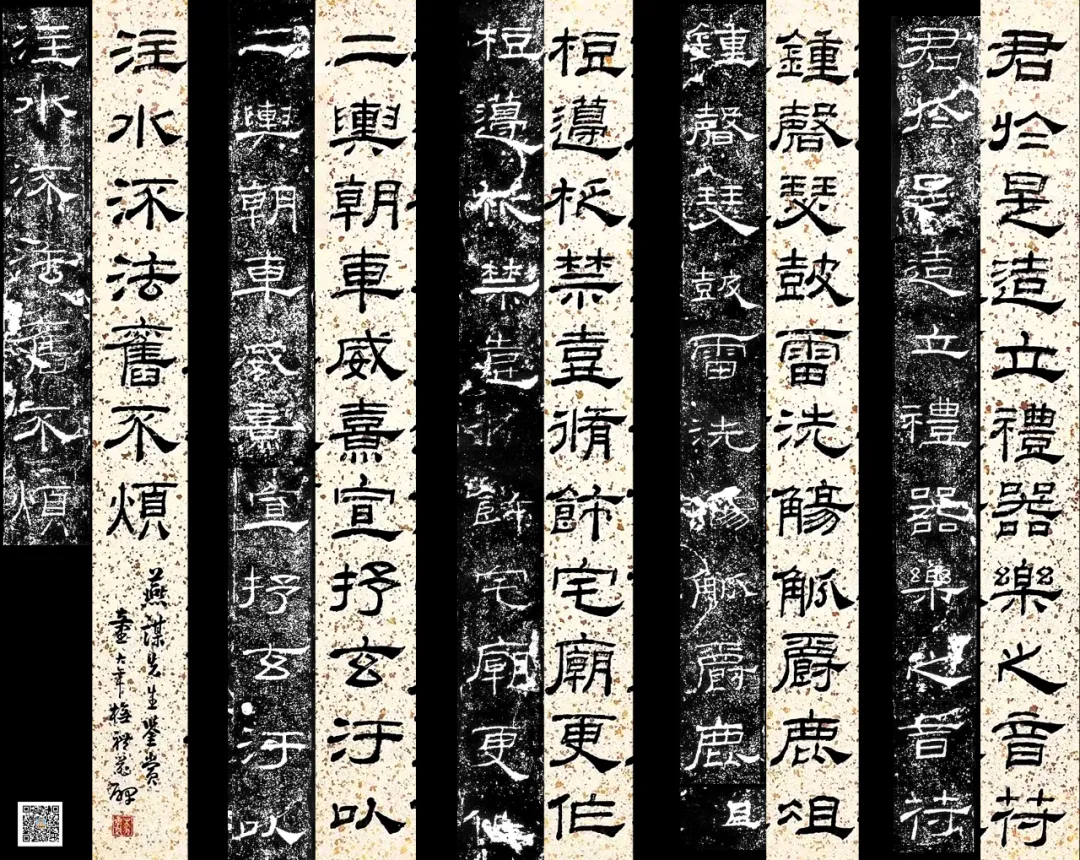 君於是造立禮器樂之音符
君於是造立禮器樂之音符
鍾磬瑟鼓雷洗觴觚爵鹿俎
鍾磬瑟鼓雷洗觴觚爵鹿俎
梪籩柉禁壺脩飾宅廟更作
梪籩柉禁壺脩飾宅廟更作
二輿朝車威熹宣抒玄汙以
二輿朝車威熹宣抒玄汙以
注水流法舊不煩
燕謀先生鑒賞
童大年橅禮器碑
注水流法舊不煩